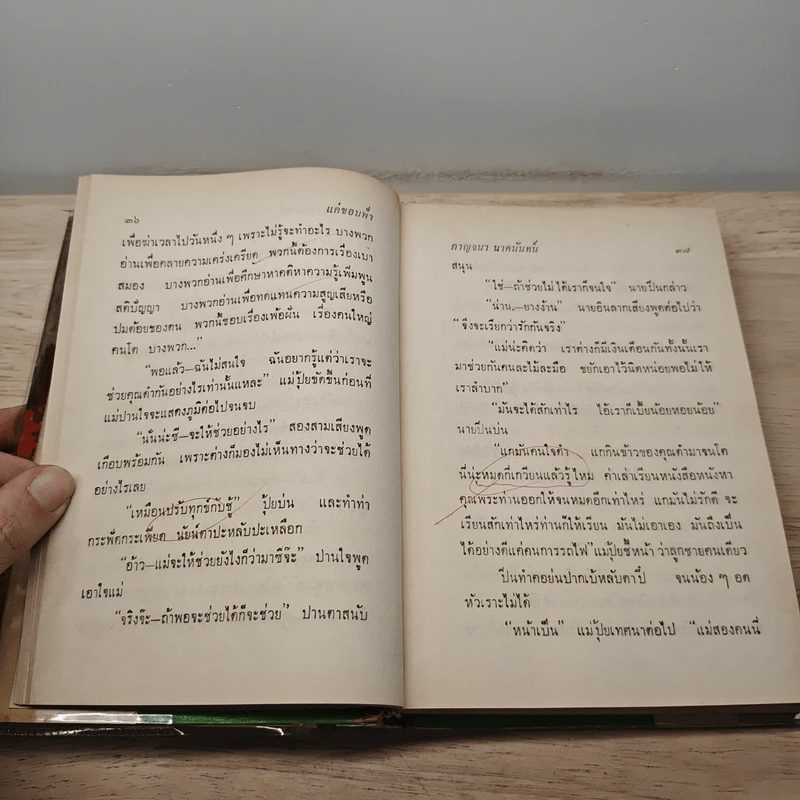 ๓๖ แค่ขอบฟ้า
เพื่อฆ่าเวลาไปวันหนึ่ง ๆ เพราะไม่รู้จะทำอะไร บางพวก
อ่านเพื่อคลายความเคร่งเครียด พวกนี้ต้องการเรื่องเบา
สมอง บางพวกอ่านเพื่อศึกษาหาคติหาความรู้เพิ่มพูน
สติปัญญา บางพวกอ่านเพื่อทดแทนความสูญเสียหรือ
ปมด้อยของตน พวกนี้ชอบเรื่องเพ้อฝัน เรื่องคนใหญ่
คนโต บางพวก...”
“พอแล้ว—ฉันไม่สนใจ ฉันอยากรู้แต่ว่าเราจะ
ช่วยคุณดำกันอย่างไรเท่านั้นแหละ” แม่ปุ้ยขัดขึ้นก่อนที่
แม่ปานใจจะแสดงภูมิต่อไปจนจบ
“นั่นน่ะซี—จะให้ช่วยอย่างไร” สองสามเสียงพูด
เกือบพร้อมกัน เพราะต่างก็มองไม่เห็นทางว่าจะช่วยได้
อย่างไรเลย
“เหมือนปรับทุกข์กับชู้” ปุ้ยบ่น และทำท่า
กระฟัดกระเฟียด นัยน์ตาปะหลับปะเหลือก
“อ้าว—แม่จะให้ช่วยยังไงก็ว่ามาซีจ๊ะ” ปานใจพูด
เอาใจแม่
“จริงจ๊ะ—ถ้าพอจะช่วยได้ก็จะช่วย” ปานตาสนับ
กาญจนา นาคนันทน์ ๓๗
สนุน
“ใช่—ถ้าช่วยไม่ได้เราก็จนใจ” นายปืนกล่าว
“น่าน,—ยางง้าน” นายอินลากเสียงพูดต่อไปว่า
“จึงจะเรียกว่ารักกันจริง”
“แม่น่ะคิดว่า เราต่างก็มีเงินเดือนกันทั้งนั้นเรา
มาช่วยกันคนละไม้ละมือ ขยักเอาไว้นิดหน่อยพอไม่ให้
เราลำบาก”
“มันจะได้สักเท่าไร ไอ้เราก็เบี้ยน้อยหอยน้อย”
นายปืนบ่น
“แกมันคนใจดำ แกกินข้าวของคุณดำมาจนโต
นี่น่ะหมดกี่เกวียนแล้วรู้ไหม ค่าเล่าเรียนหนังสือหนังหา
คุณพระท่านออกให้จนหมดอีกเท่าไหร่ แกมันไม่รักดี จะ
เรียนสักเท่าไหร่ท่านก็ให้เรียน มันไม่เอาเอง มันถึงเป็น
ได้อย่างดีแค่คนการรถไฟ” แม่ปุ้ยชี้หน้าว่าลูกชายคนเดียว
ปืนทำคอย่นปากเบ้หลับตาปี๋ จนน้อง ๆ อด
หัวเราะไม่ได้
“หน้าเป็น” แม่ปุ้ยเทศนาต่อไป “แม่สองคนนี่